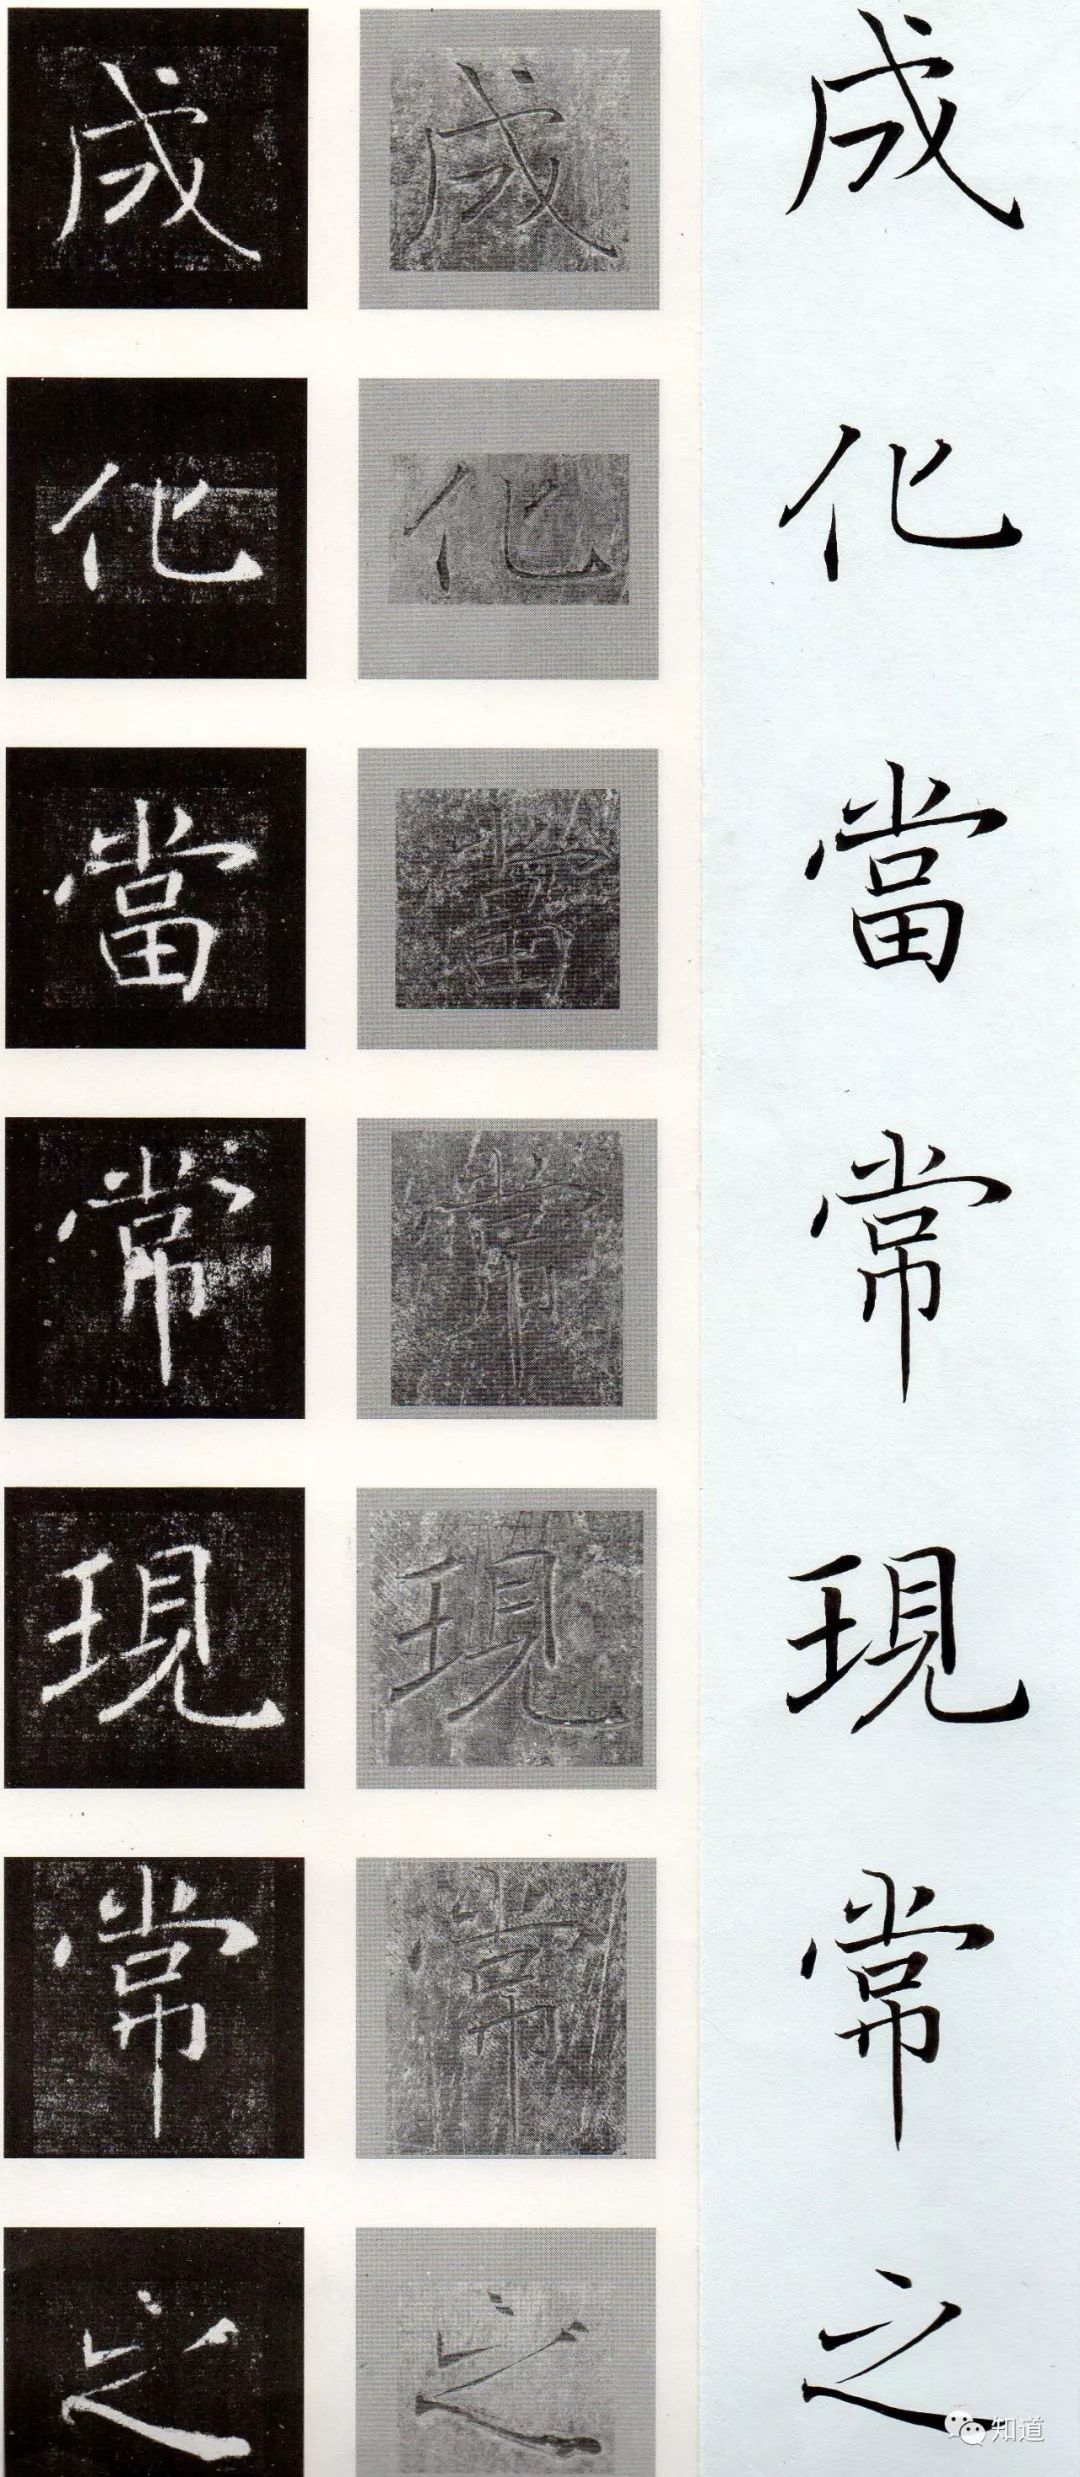 成 成 成
化 化 化
當 當 當
常 常 常
現 現 現
常 常 常
之 之 之
知道